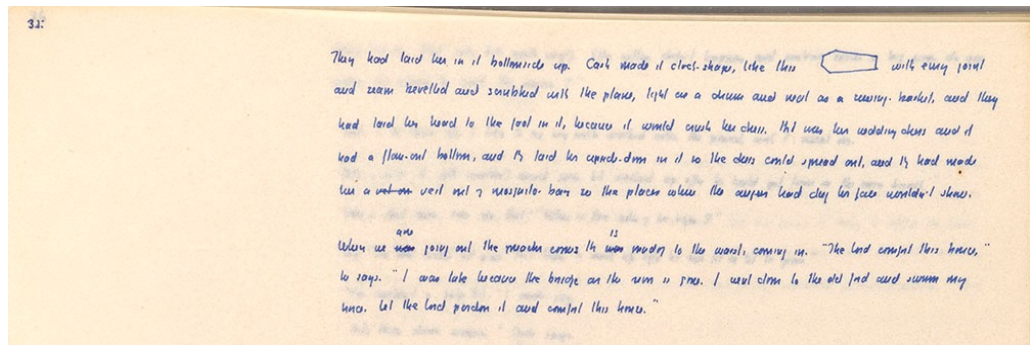 32:
They had laid her in it bottomside up. Cash made it clock-shape, like this with every joint
and seam bevelled and scrubbed with the plane, tight as a drum and neat as a sewing-basket, and they
had laid her head to the foot in it, because it would crush her dress. was her wedding dress and it
had a flare-out bottom, and they laid her upside-down in it so the dress could spread out, and they had made
her a veil out of mosquito bar so the places where the augers had dug her face wouldn't show.
are is
When we going out the preacher comes. He muddy to the waist, coming in. "The Lord comfort this house,"
he says. "I was late because the bridge is gone. I went down to the old ford and swum my
horse. Let the Lord pardon it and comfort this house."